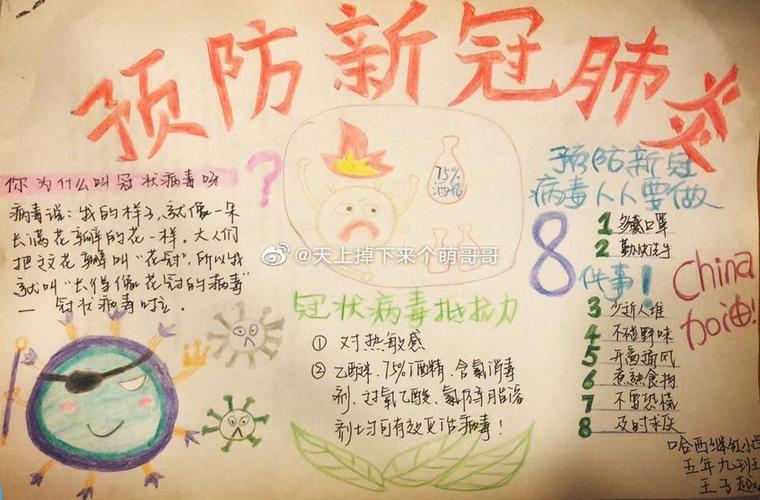 预防新冠肺炎
你为什么叫冠状病毒呀
?
病毒说:我的样子,就像一朵
长满花瓣的花一样。大人们
把这花瓣叫“花冠”,所以我
就叫“长得像花冠的病毒”
— 冠状病毒
75%
酒精
@天上掉下来个萌哥哥
冠状病毒抵抗力
① 对热敏感
② 乙醚、75%酒精、含氯消毒
剂、过氧乙酸、氯仿等脂溶
剂均可有效灭活病毒!
预防新冠
病毒人人要做
8
件事!
1 多戴口罩
2 勤洗手
3 少近人堆
4 不碰野味
5 开窗通风
6 煮熟食物
7 不要恐慌
8 及时求医
China
加油!
哈西继红小学
五年九班
王子越